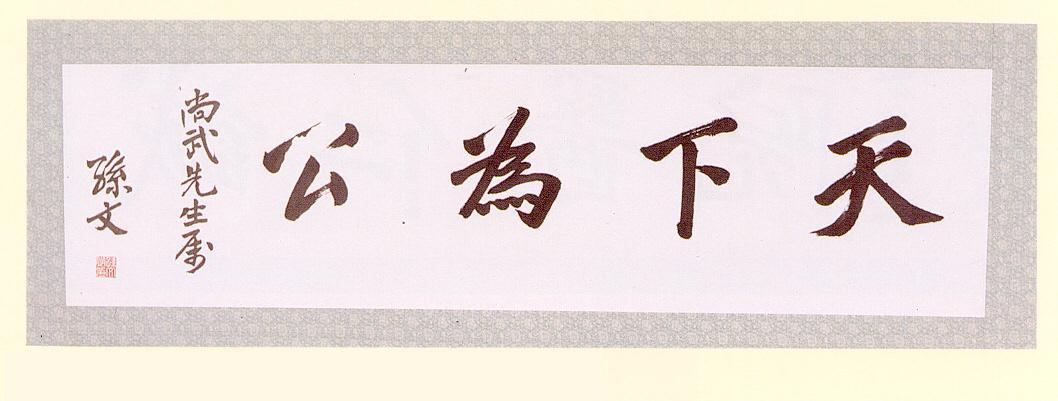 天下為公
尚武先生属
孫文